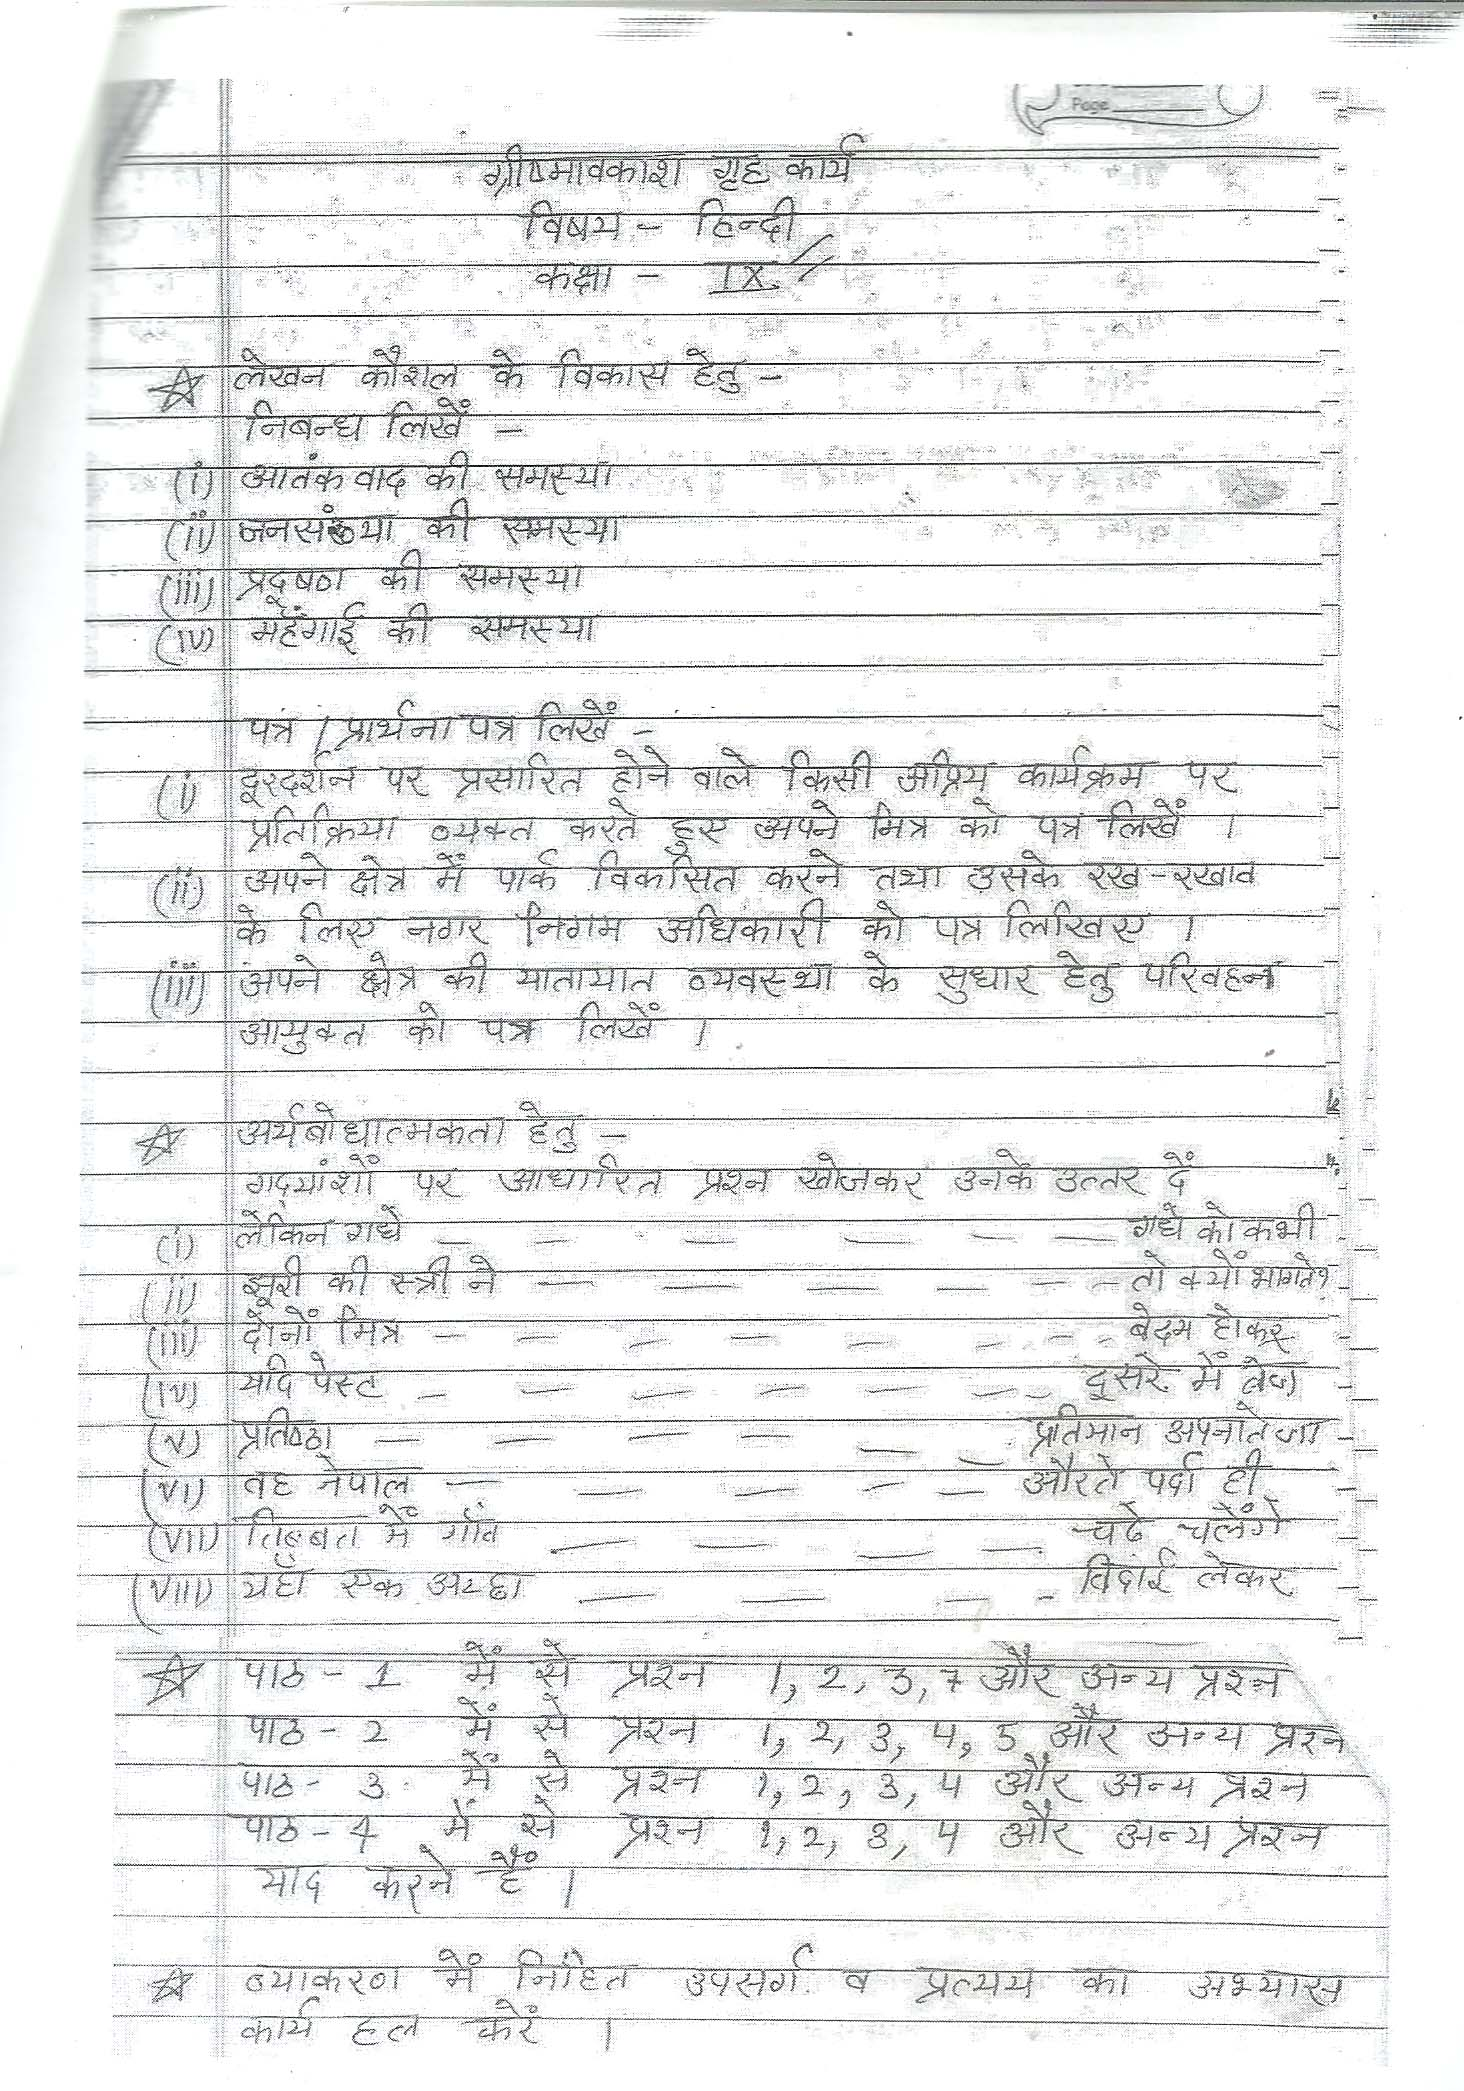 Page
ग्रीष्मावकाश गृह कार्य
विषय - हिन्दी
कक्षा - IX
लेखन कौशल के विकास हेतु -
निबन्ध लिखें -
(i) आतंकवाद की समस्या
(ii) जनसंख्या की समस्या
(iii) प्रदूषण की समस्या
(iv) महँगाई की समस्या
पत्र / प्रार्थना पत्र लिखें -
(i) दूरदर्शन पर प्रसारित होने वाले किसी अप्रिय कार्यक्रम पर
प्रतिक्रिया व्यक्त करते हुए अपने मित्र को पत्र लिखें ।
(ii) अपने क्षेत्र में पार्क विकसित करने तथा उसके रख-रखाव
के लिए नगर निगम अधिकारी को पत्र लिखिए ।
(iii) अपने क्षेत्र की यातायात व्यवस्था के सुधार हेतु परिवहन
आयुक्त को पत्र लिखें ।
अर्थबोधात्मकता हेतु -
गद्यांशों पर आधारित प्रश्न खोजकर उनके उत्तर दें
(i) लेकिन गधे — — — — — — गधे को कभी
(ii) झूरी की स्त्री ने — — — — - - तो क्यों भागते?
(iii) दोनों मित्र — — — — — - - बेदम होकर
(iv) यदि पेस्ट — — — — — — - दूसरे में तेज
(v) प्रतिष्ठा — — — — — — प्रतिमान अपनाते जा
(vi) वह नेपाल — — — — — औरतें पर्दा ही
(vii) तिब्बत में गाँव — — — — चढ़े चलेंगे
(viii) यहाँ एक अच्छा — — — - विदाई लेकर
पाठ - 1 में से प्रश्न 1, 2, 3, 7 और अन्य प्रश्न
पाठ - 2 में से प्रश्न 1, 2, 3, 4, 5 और अन्य प्रश्न
पाठ - 3 में से प्रश्न 1, 2, 3, 4 और अन्य प्रश्न
पाठ - 4 में से प्रश्न 1, 2, 3, 4 और अन्य प्रश्न
याद करने हैं ।
व्याकरण में निहित उपसर्ग व प्रत्यय का अभ्यास
कार्य हल करें ।